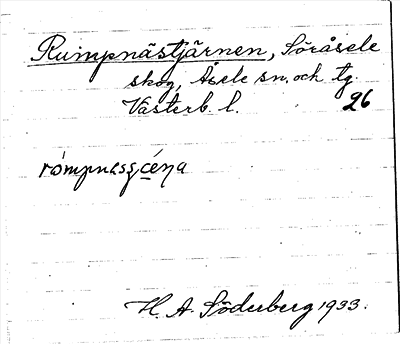 Rumpnästjärnen, Söråsele
skog, Åsele sn. och tg.
Västerb. l. 26
H. A. Söderberg 1933.